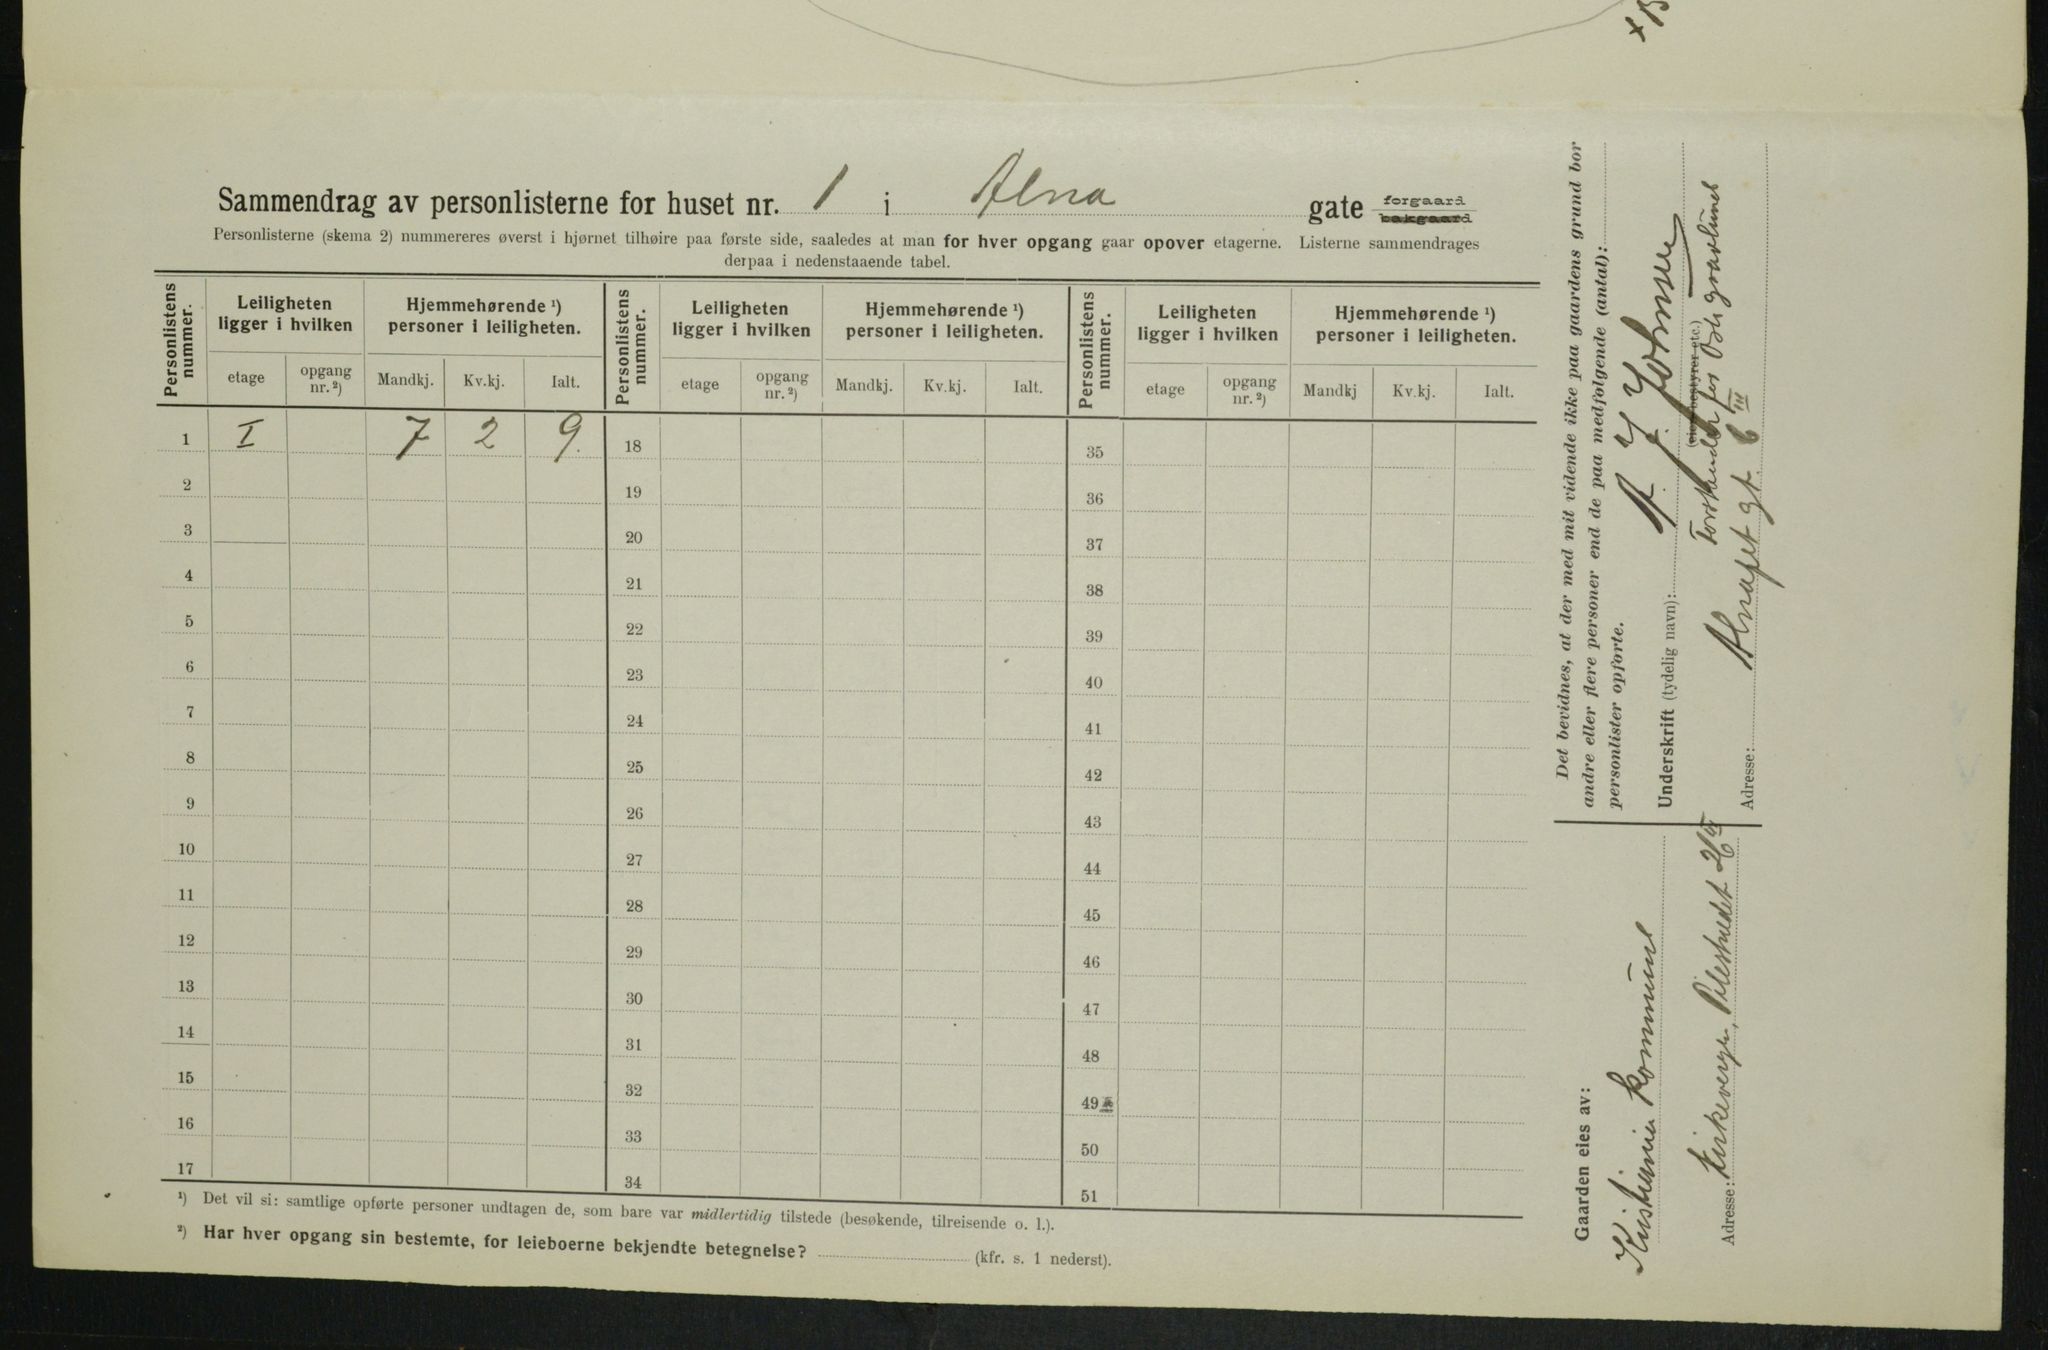 Sammendrag av personlisterne for huset nr. 1 i Alna gate forgaard
bakgaard
Personlisterne (skema 2) nummereres øverst i hjørnet tilhøire paa første side, saaledes at man for hver opgang gaar opover etagerne. Listerne sammendrages
derpaa i nedenstaaende tabel.
Personlistens nummer. Leiligheten ligger i hvilken Hjemmehørende ¹) personer i leiligheten. Personlistens nummer. Leiligheten ligger i hvilken Hjemmehørende ¹) personer i leiligheten. Personlistens nummer. Leiligheten ligger i hvilken Hjemmehørende ¹) personer i leiligheten.
etage opgang nr. ²) Mandkj. Kv.kj. Ialt. etage opgang nr. ²) Mandkj. Kv.kj. Ialt. etage opgang nr. ²) Mandkj Kv.kj. Ialt.
1 I 7 2 9. 18 35
2 19 36
3 20 37
4 21 38
5 22 39
6 23 40
7 24 41
8 25 42
9 26 43
10 27 44
11 28 45
12 29 46
13 30 47
14 31 48
15 32 49
16 33 50
17 34 51
¹) Det vil si: samtlige opførte personer undtagen de, som bare var midlertidig tilstede (besøkende, tilreisende o. l.).
²) Har hver opgang sin bestemte, for leieboerne bekjendte betegnelse? (kfr. s. 1 nederst).
Det bevidnes, at der med mit vidende ikke paa gaardens grund bor
andre eller flere personer end de paa medfølgende (antal):
personlister opførte.
Underskrift (tydelig navn): A. J. Johnsen
(eier, bestyrer etc.)
Forstander for Oslo gravlund
Adresse: Alnafet gt. 6 III
Gaarden eies av:
Kristiania kommune
Adresse: Kirkevergen, Pilestrædet 26 III